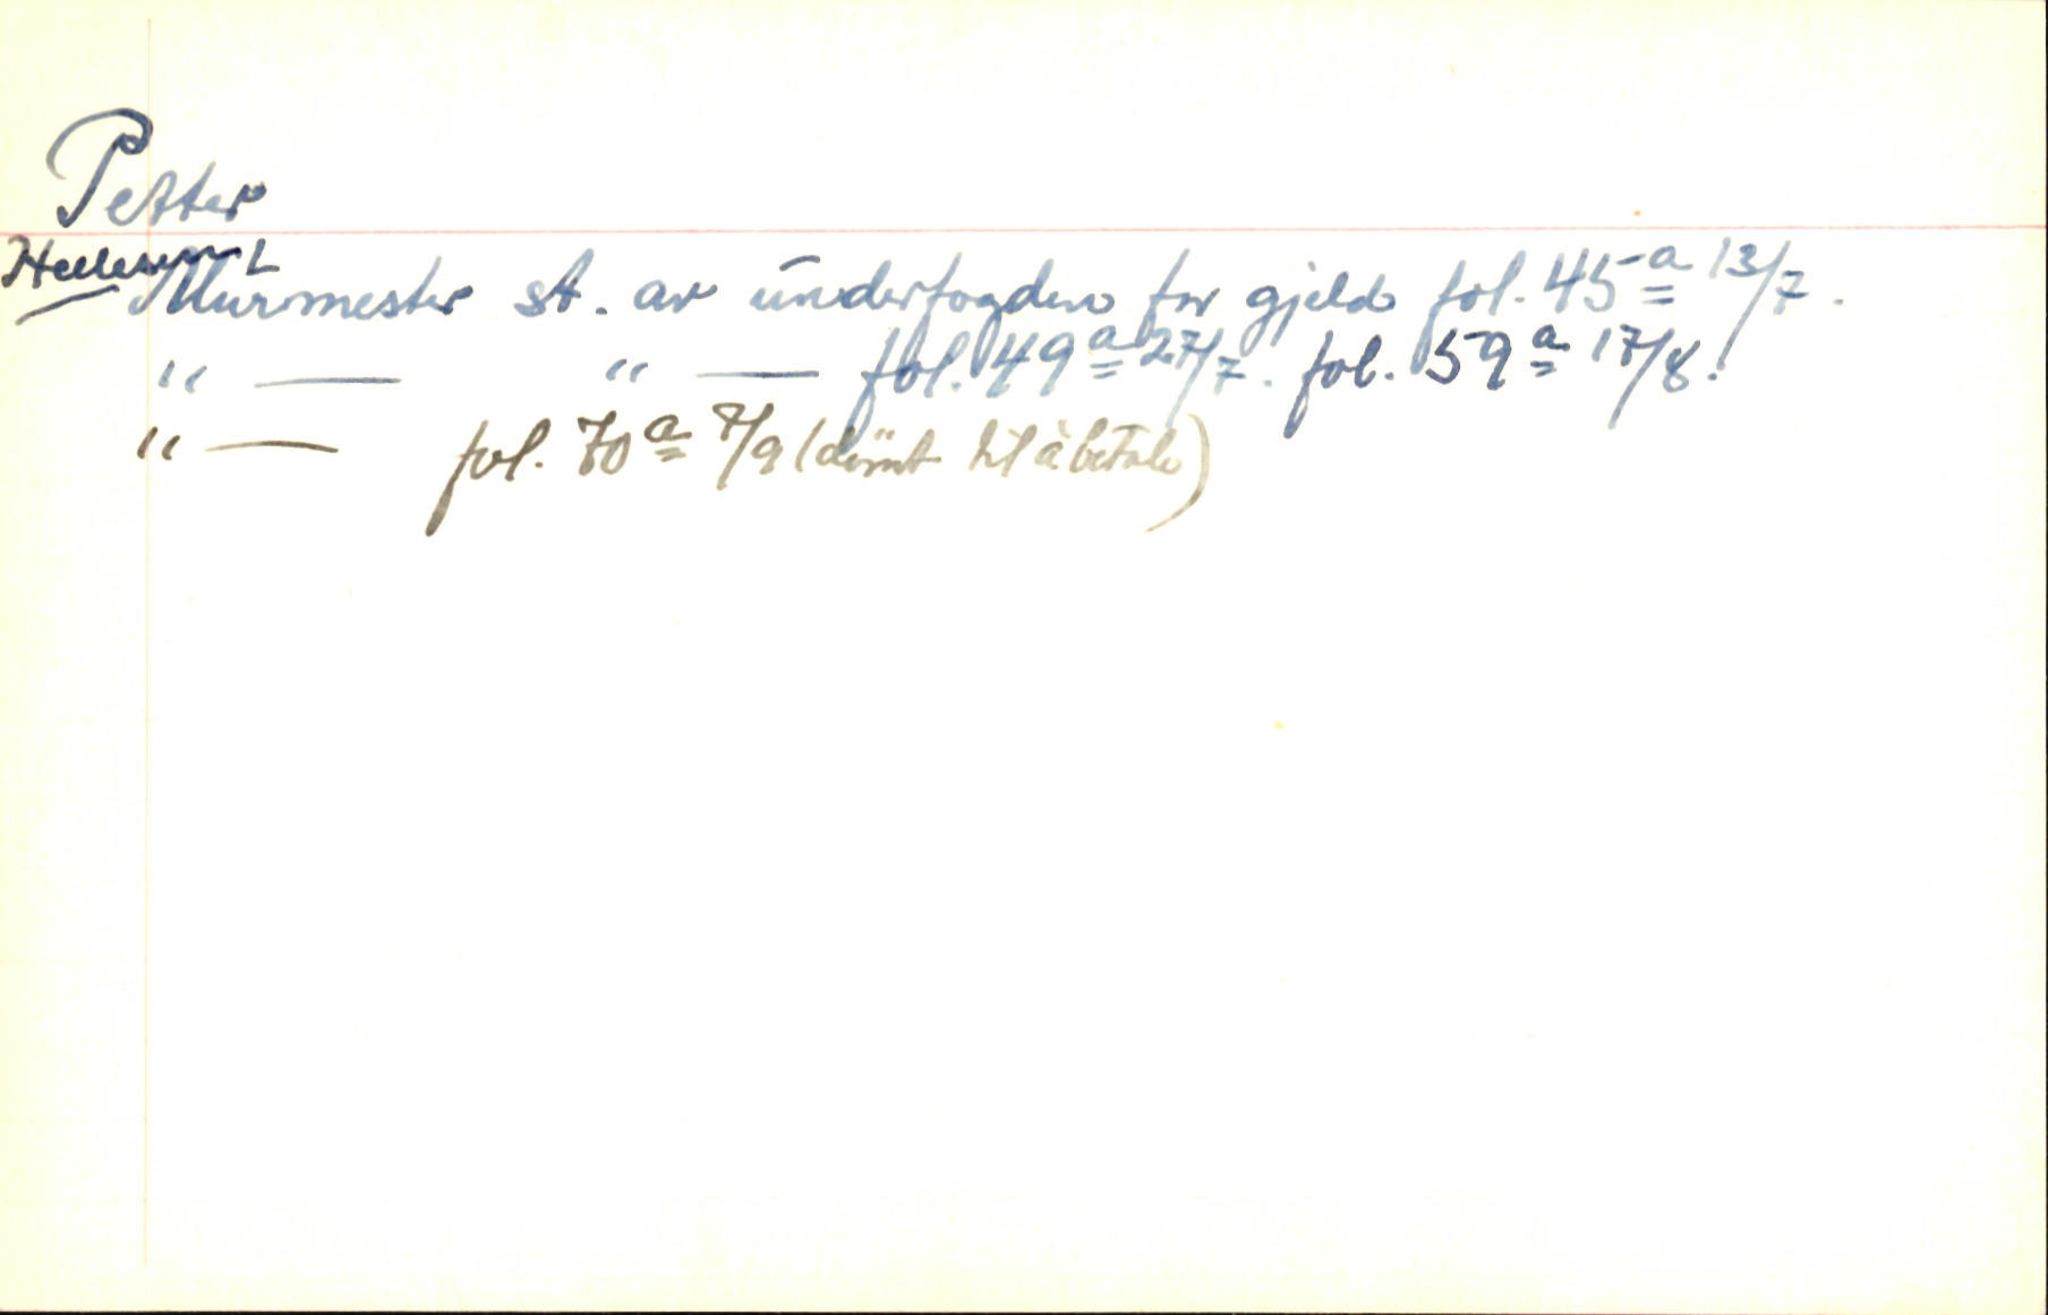 Petter
Murmester st. av underfogden for gjeld fol. 45a 13/7.
" — " — fol. 49a 27/7. fol. 59a 17/8.
" — fol. 70a 7/9 (dömt til å betale)